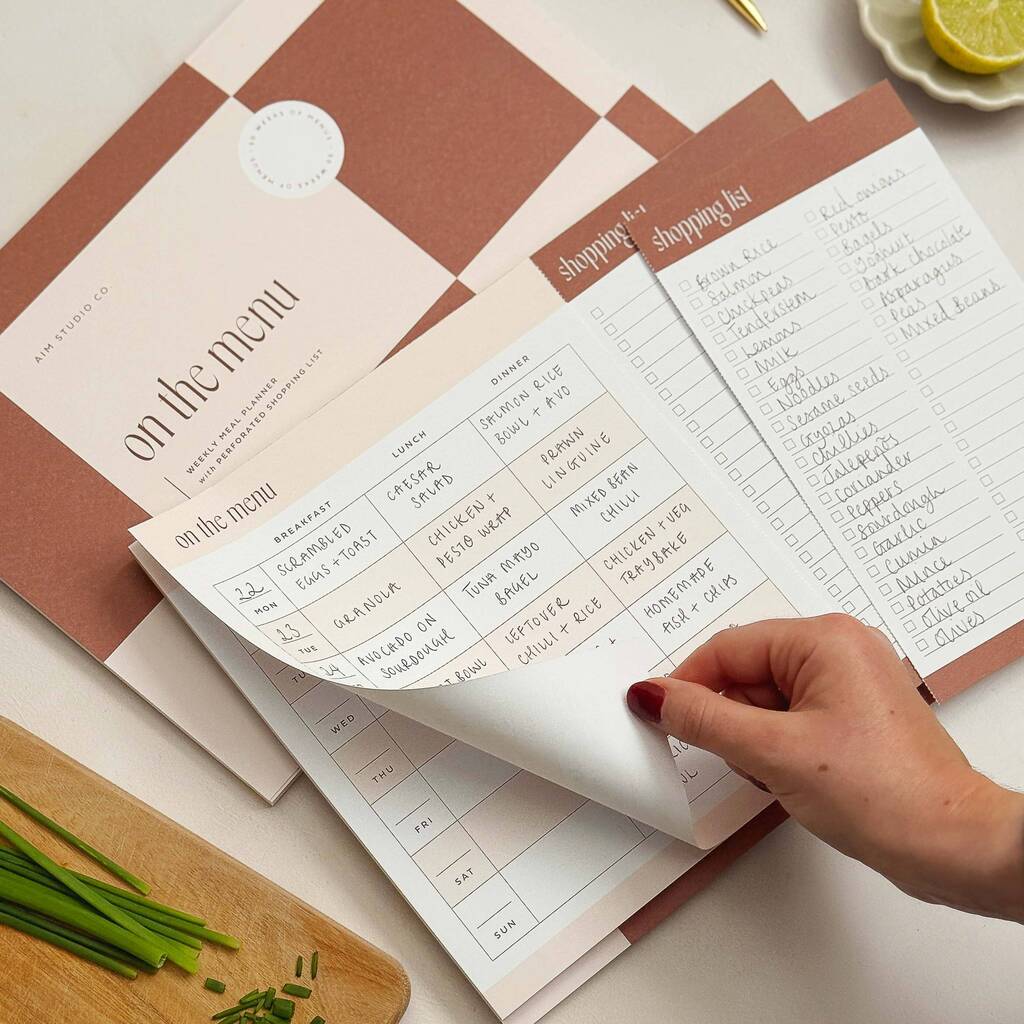 52 WEEKS OF MENUS
AIM STUDIO CO.
on the menu
WEEKLY MEAL PLANNER
with PERFORATED SHOPPING LIST
on the menu
BREAKFAST
LUNCH
DINNER
22
MON
SCRAMBLED
EGGS + TOAST
CAESAR
SALAD
SALMON RICE
BOWL + AVO
23
TUE
GRANOLA
CHICKEN +
PESTO WRAP
PRAWN
LINGUINE
24
AVOCADO ON
SOURDOUGH
TUNA MAYO
BAGEL
MIXED BEAN
CHILLI
BOWL
LEFTOVER
CHILLI + RICE
CHICKEN + VEG
TRAYBAKE
HOMEMADE
FISH + CHIPS
TU
WED
THU
FRI
SAT
SUN
shopping
shopping list
Brown Rice
Salmon
Chickpeas
Tenderstem
Lemons
Milk
Eggs
Noodles
Sesame seeds
Gyozas
Chillies
Jalepeños
Coriander
Peppers
Sourdough
Garlic
Cumin
Mince
Potatoes
Olive oil
Olives
Red onions
Pesto
Bagels
Yoghurt
Dark chocolate
Asparagus
Peas
Mixed Beans